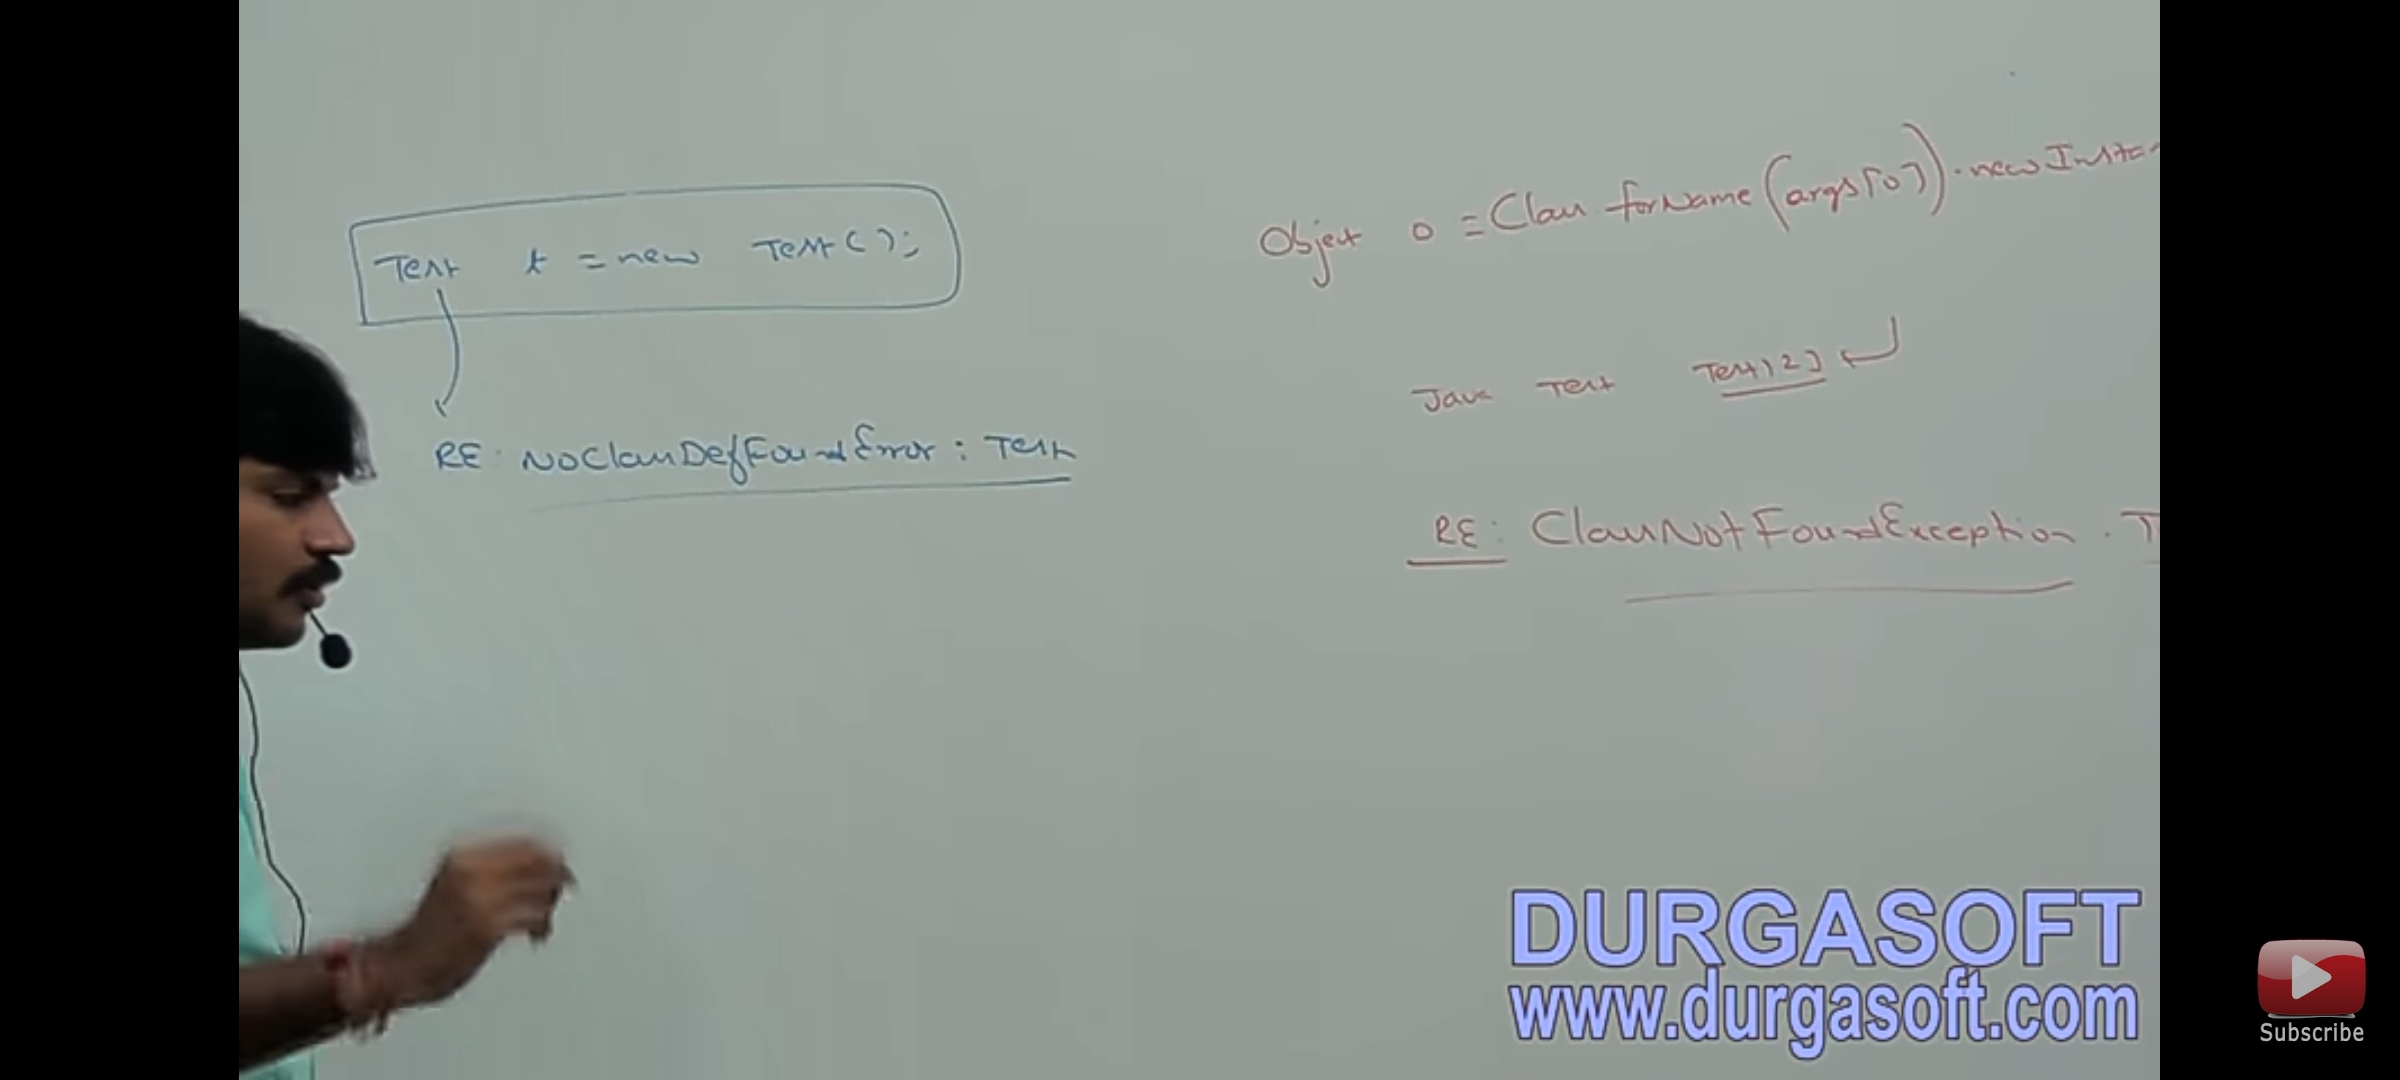 Test t = new Test();
RE: NoClassDefFoundError: Test
Object o = Class.forName(args[0]).newInsta
Java Test Test123 ↵
RE: ClassNotFoundException: T
DURGASOFT
www.durgasoft.com
Subscribe